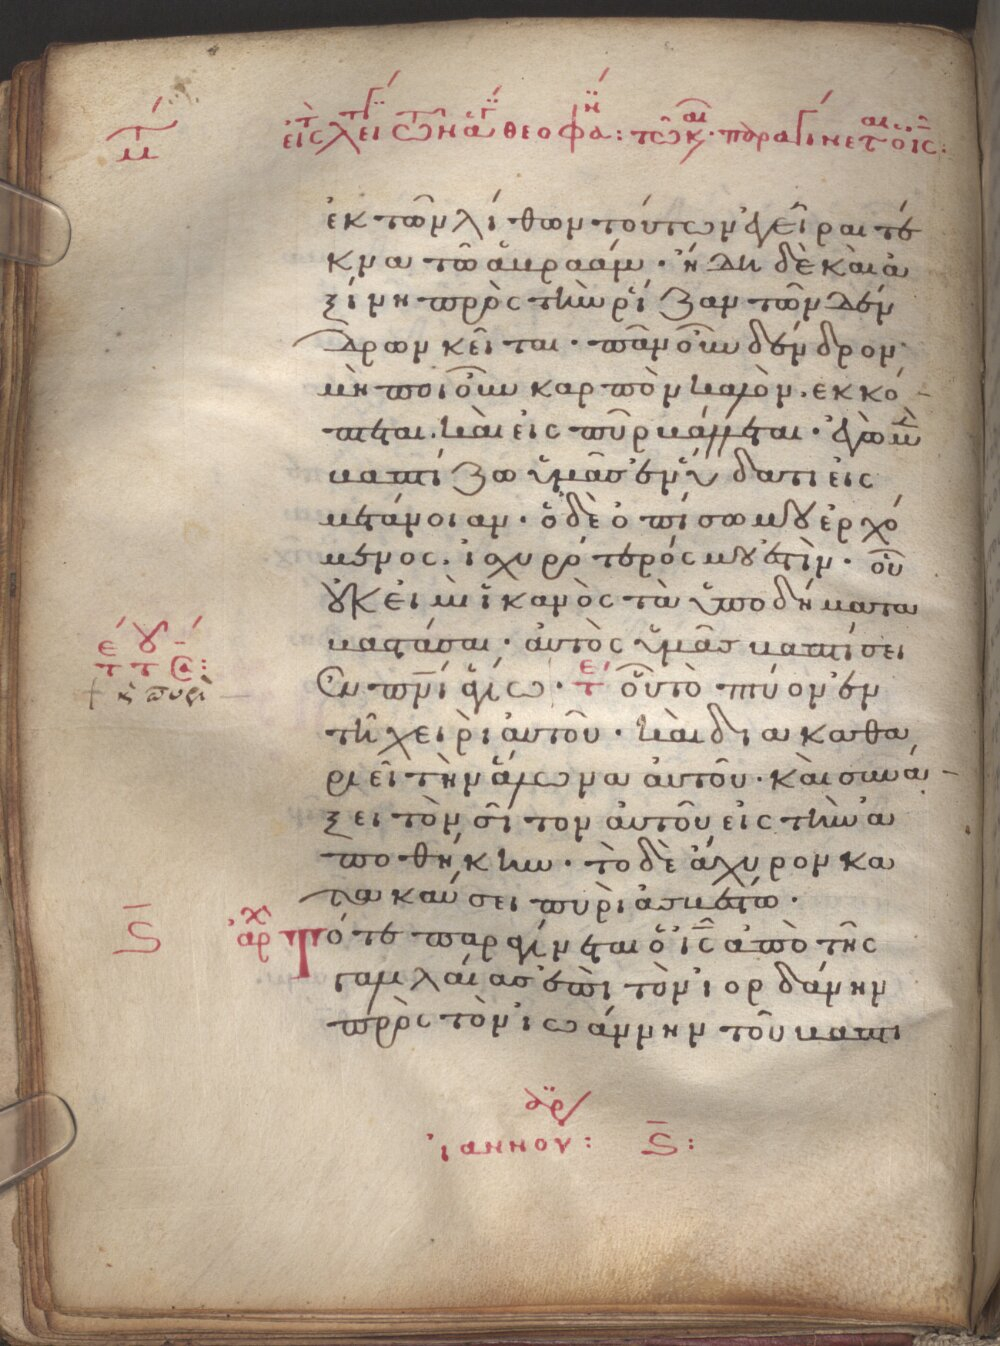 ἐκ τῶν λίθων τούτων ἐγεῖραι τέ
κνα τῶ ἀβραάμ· ἤδη δὲ καὶ ἀ
ξίνη πρὸς τὴν ῥίζαν τῶν δέν
δρων κεῖται· πᾶν οὖν δένδρον
μὴ ποιοῦν καρπὸν καλὸν. εκκό
πτεται. καὶ εἰς πῦρ βάλλεται· ἐγὼ μὲν
βαπτίζω ὑμᾶς ἐν ὕδατι εἰς
μετάνοιαν· ὁ δὲ ὀπίσω μου ἐρχό
μενος. ἰσχυρότερός μου ἐστὶν· οὗ
οὐκ εἰμὶ ἱκανὸς τὰ ὑποδήματα
βαστάσαι· ἀυτὸς ὑμᾶς βαπτίσει
ἐν πνῑ ἁγίω· οὗ τὸ πτύον ἐν
τῆ χειρὶ ἀυτοῦ· καὶ διακαθα
ριεῖ τὴν ἅλωνα ἀυτοῦ· καὶ συνά
ξει τὸν σῖτον ἀυτοῦ εἰς τὴν ἀ
ποθήκην· τὸ δὲ ἄχυρον κα
τακαύσει πυρὶ ἀσβέστω·
ϛ̄ ἀρχ Τότε παραγίνεται ὁ ις̄ ἀπὸ τῆς
γαλιλαίας ἐπὶ τὸν ἰορδάνην
πρὸς τὸν ἰωάννην τοῦ βαπτι
ϛ̄: